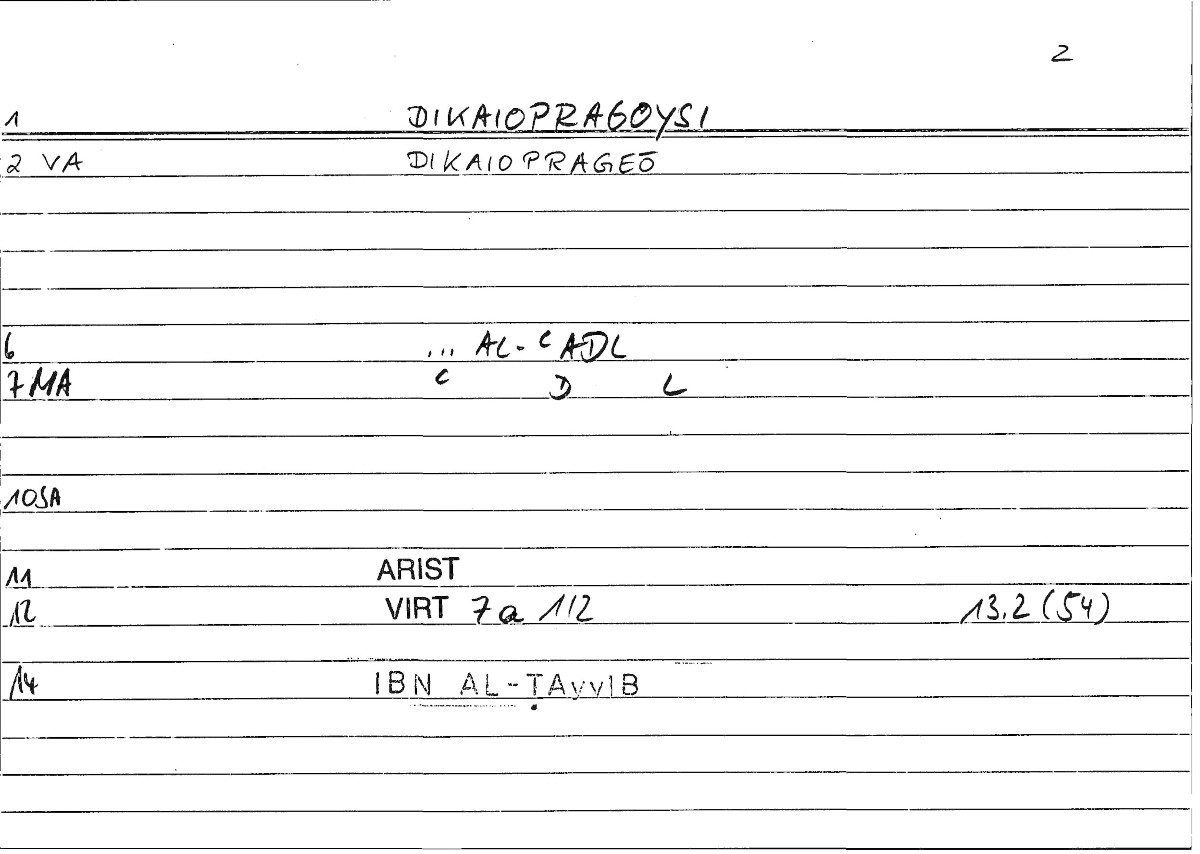 2
1 DIKAIOPRAGOYSI
2 VA DIKAIOPRAGEŌ
6 ... AL-ʿADL
7 MA ʿ D L
10 SA
11 ARIST
12 VIRT 7a 1/2 13.2 (54)
14 IBN AL-ṬAyyIB